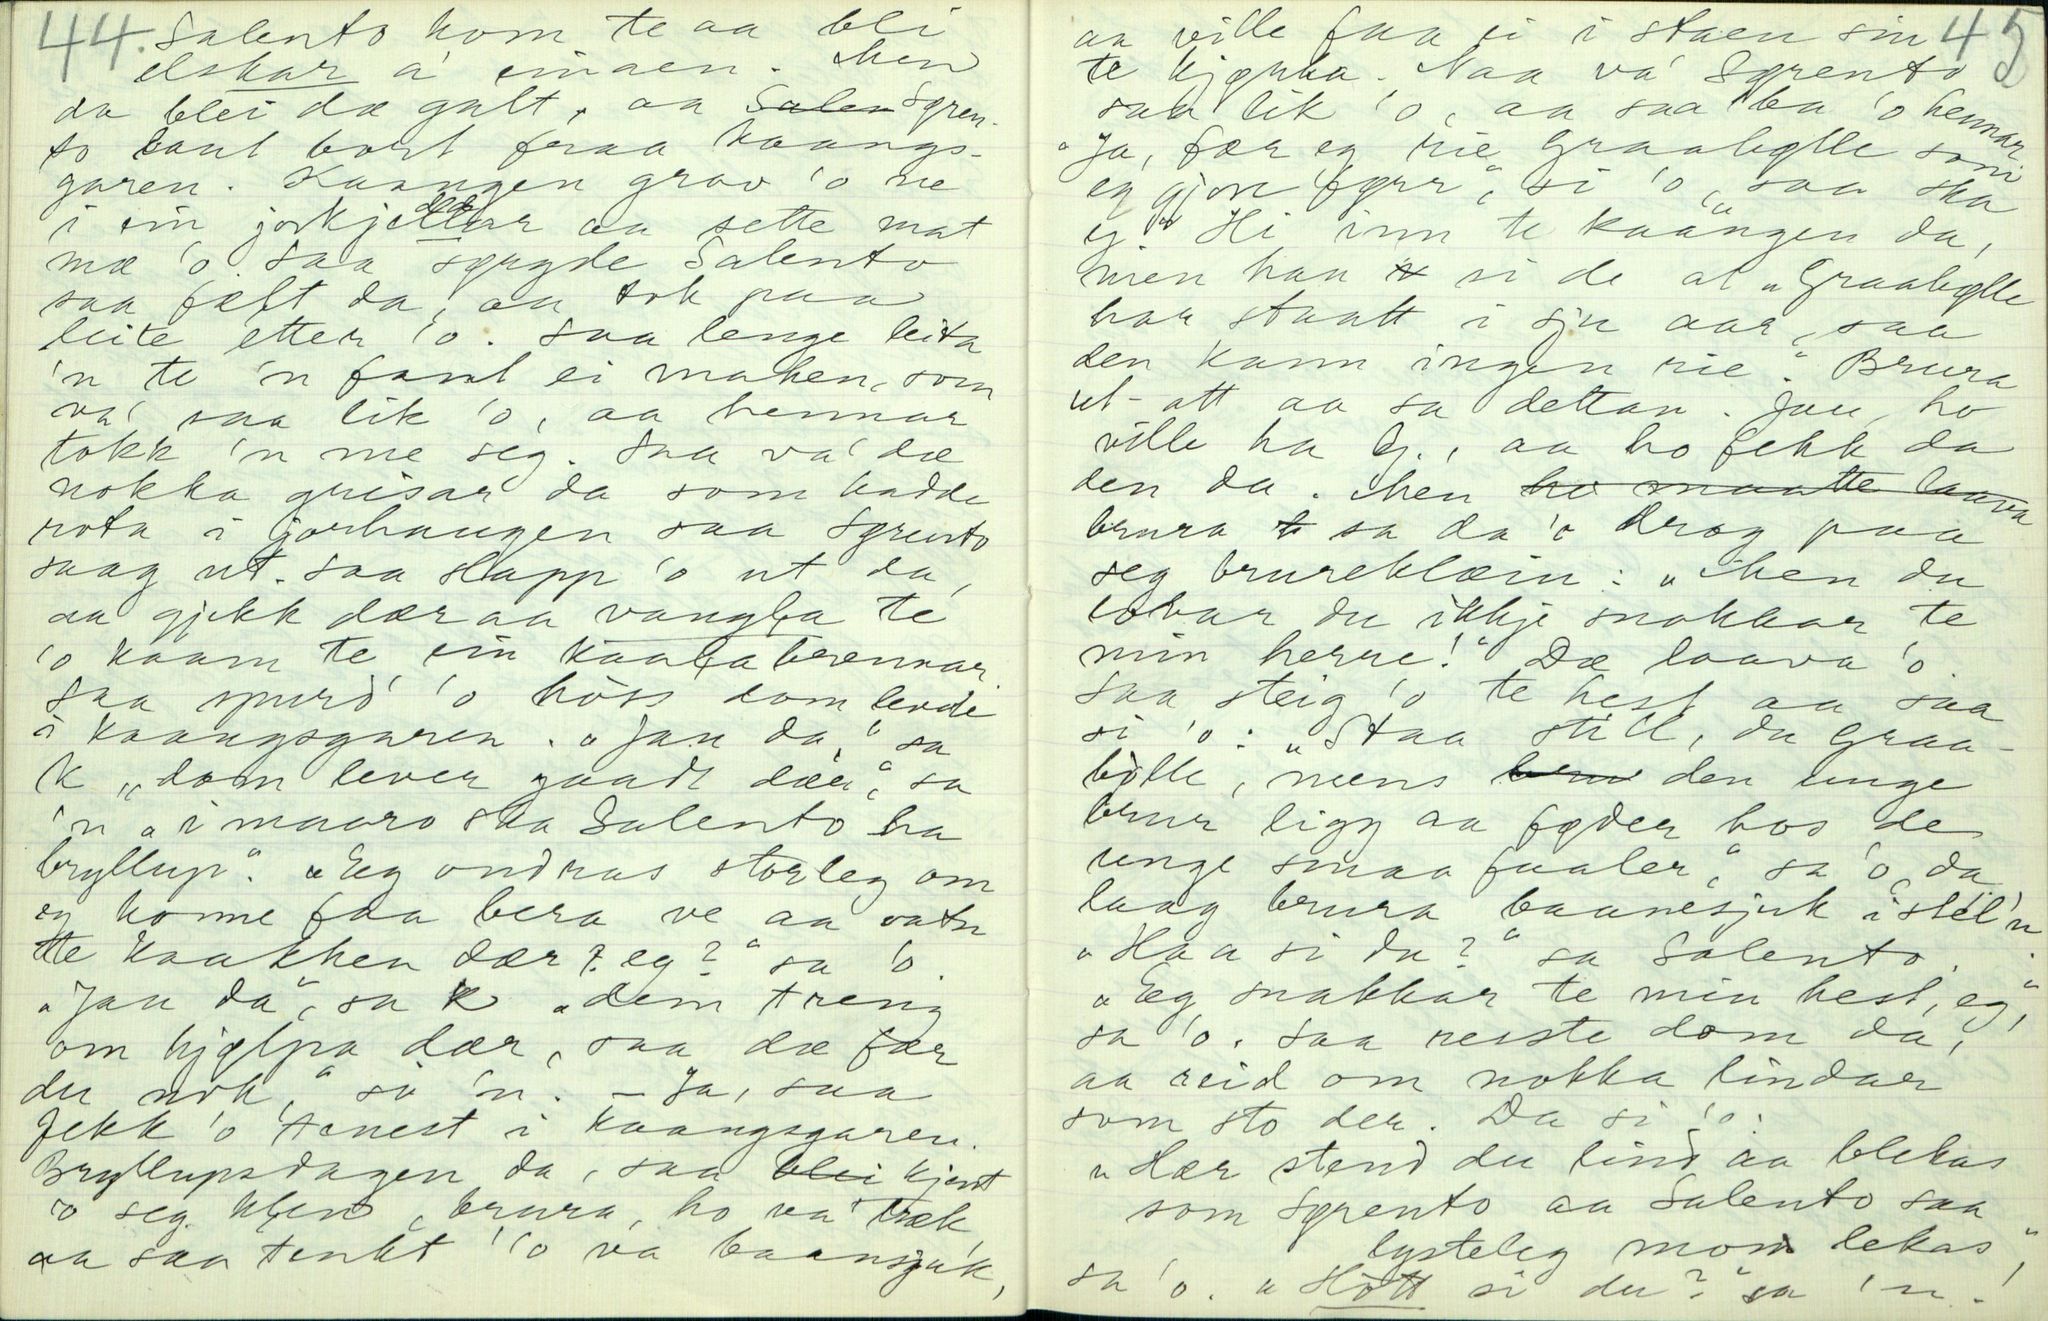 44.
Salento kom te aa bli
elskar a' einaen. Men
da blei dæ galt, aa Salen Søren-
to vart bort fraa kaangs-
garen. Kaangen grov 'o ne
i ein jorkjellar aa sette mat
mæ 'o. Saa sørgde Salento
saa fælt da, aa tok paa
leite etter 'o. Saa lenge leita
'n te 'n fant ei maken, som
va' saa lik 'o, aa hennar
tokk 'n me seg. Saa va' dæ
nokka grisar da som hadde
rota i jorhaugen saa Sørento
saag ut. Saa slapp 'o ut da,
aa gjekk dær aa vangla te
'o kaam te ein kaalabrennar.
Saa spurd' 'o höss dom levde
i kaangsgaren. „Jau da," sa
K „dom lever gaadt dær," sa
'n „i maaro ska Salento ha
bryllup". „Eg ondras storleg om
eg konne faa bera ve aa vatn
te kaakken dær eg?" sa 'o.
„Jau da", sa K „dem treng
om hjølpa dær, saa dæ fær
du nok," si 'n. – Ja, saa
fekk 'o tenest i kaangsgaren.
Bryllupsdagen da, saa blei kjent
'o seg klen, brura, ho va' træk
aa saa tenkt' 'o va baansjuk,
45
aa ville faa ei i staen sin
te kjørka. Naa va' Sørento
saa lik 'o, aa saa ba 'o hennar.
„Ja, fær eg rie Graabølle som
eg gjore førr", si 'o, „saa ska
eg." Hi inn te kaangen da,
men han s si de at „Graabølle
har staatt i sju aar, saa
den kann ingen rie". Brura
ut-att aa sa dettan. Jau, ho
ville ha G., aa ho fekk da
den da. Men ho maatte laava
brura t sa da 'o drog paa
seg brureklæin: „Men du
lovar du ikkje snakkar te
min herre!" Dæ laava 'o.
Saa steig 'o te hest aa saa
si 'o: „Staa still, du Graa-
bølle, mens den unge
brur ligg aa føder hos de
unge smaa faaler," sa 'o, da
laag brura baanesjuk i stél'n
„Haa si du?" sa Salento.
„Eg snakkar te min hest, eg,"
sa 'o. Saa reiste dom da,
aa reid om nokka lindar
som sto der. Da si 'o:
„Hær stend du lind aa blekas
som Sørento aa Salento saa
lysteleg mon lekas",
sa 'o. „Hött si du?" sa 'n.